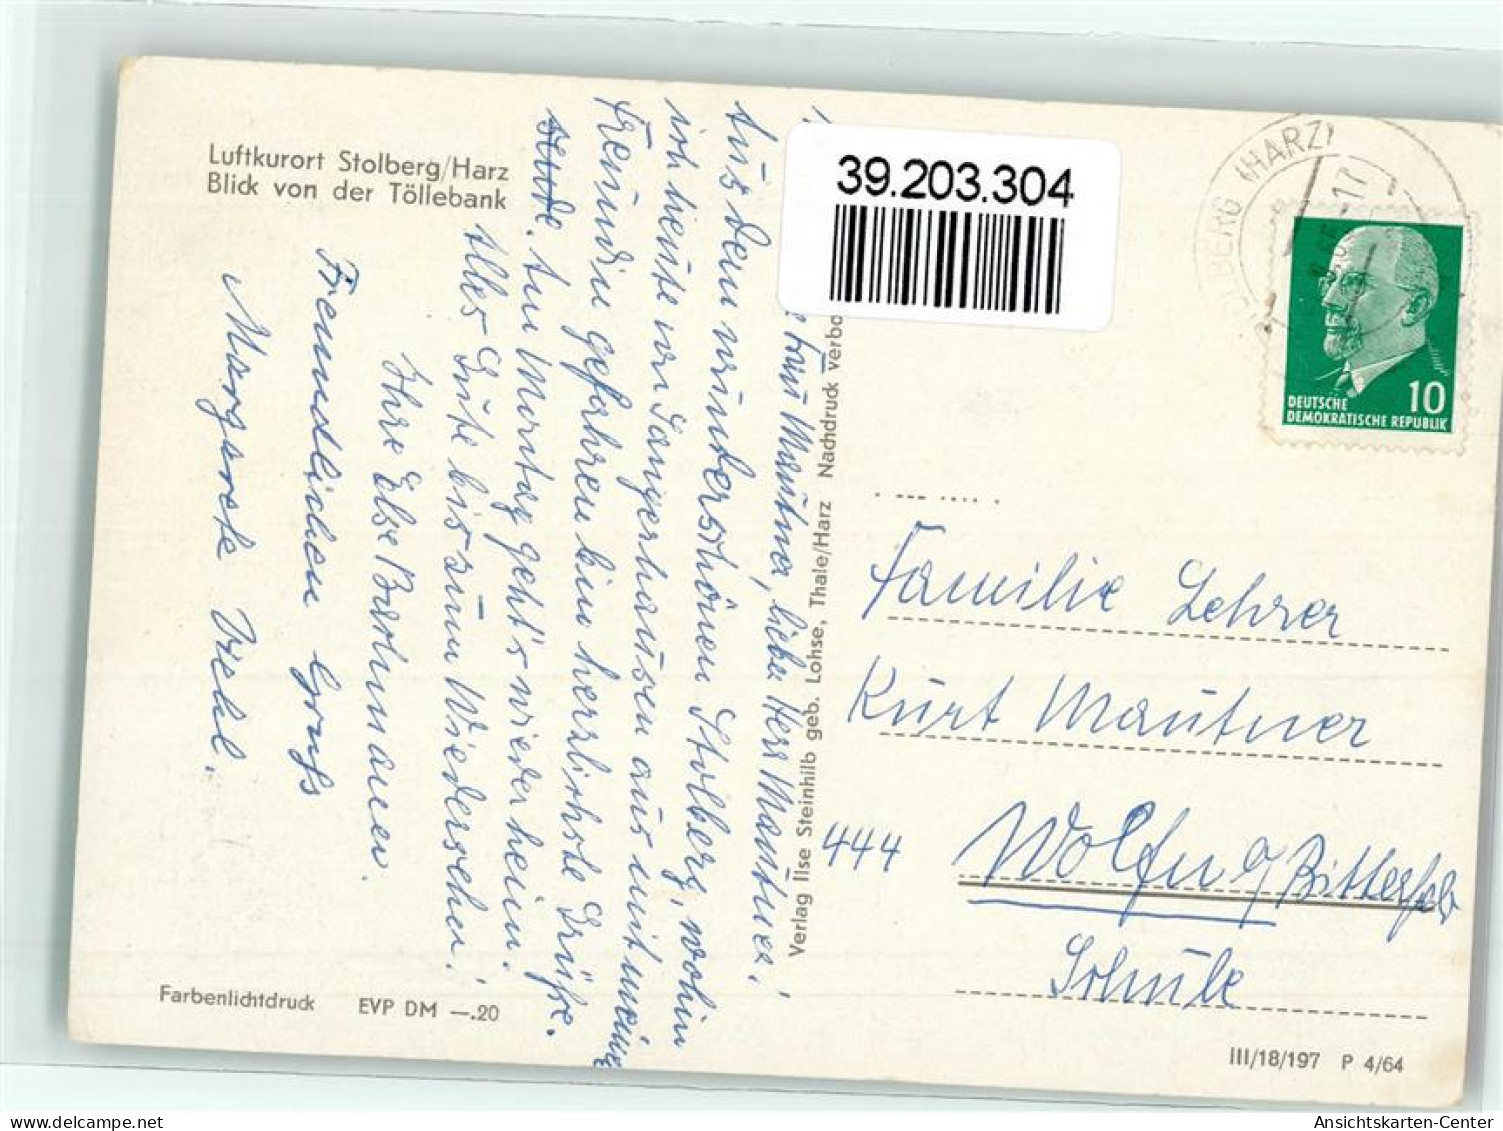 Luftkurort Stolberg/Harz
Blick von der Töllebank
39.203.304
BERG (HARZ)
-17
10
DEUTSCHE
DEMOKRATISCHE REPUBLIK
Frau Mautner, lieber Herr Mautner!
Aus dem wunderschönen Stolberg, wohin
ich heute von Sangerhausen aus mit meiner
Freundin gefahren bin herzlichste Grüße.
Am Montag geht's wieder heim.
Alles Gute bis zum Wiedersehen!
Ihre Else
Freundlichen Gruß
Margarete
Verlag Ilse Steinhilb geb. Lohse, Thale/Harz Nachdruck verbo
Familie Lehrer
Kurt Mautner
444
Wolfen / Bitterfeld
Schule
Farbenlichtdruck EVP DM —.20
III/18/197 P 4/64
Ansichtskarten-Center